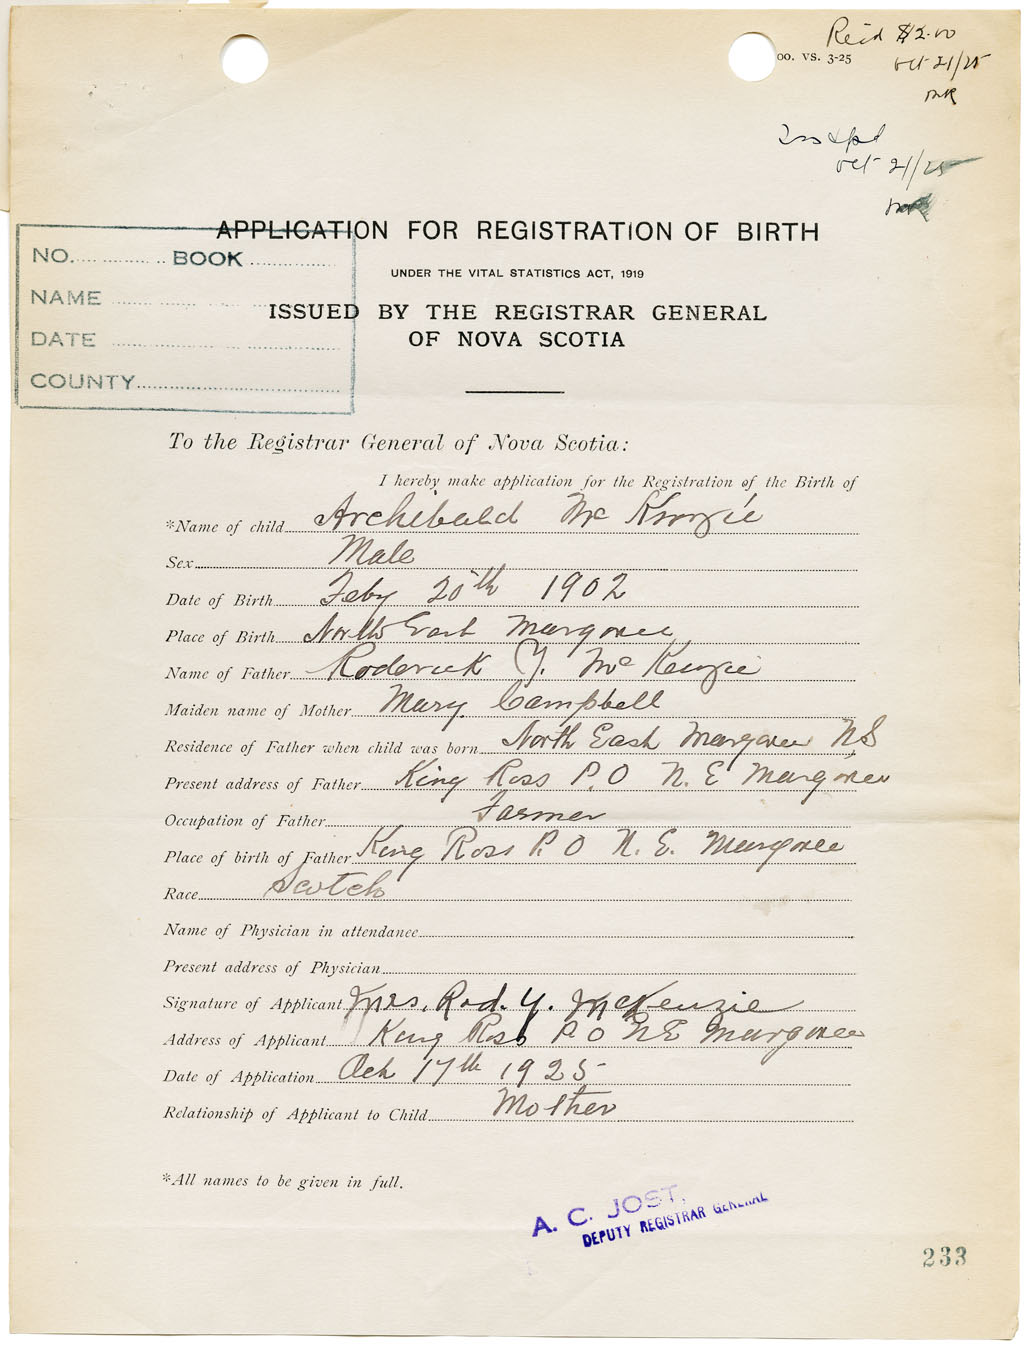 Rec'd $2.00
00. VS. 3-25
Oct 21/25
MR
Oct 21/25
APPLICATION FOR REGISTRATION OF BIRTH
UNDER THE VITAL STATISTICS ACT, 1919
ISSUED BY THE REGISTRAR GENERAL
OF NOVA SCOTIA
NO. BOOK
NAME
DATE
COUNTY
To the Registrar General of Nova Scotia:
I hereby make application for the Registration of the Birth of
*Name of child Archibald Mc Kenzie
Sex Male
Date of Birth Feby 20th 1902
Place of Birth North East Margaree
Name of Father Roderick Y. Mc Kenzie
Maiden name of Mother Mary Campbell
Residence of Father when child was born North East Margaree N.S
Present address of Father King Ross P.O N. E Margaree
Occupation of Father Farmer
Place of birth of Father King Ross P. O N. E. Margaree
Race Scotch
Name of Physician in attendance
Present address of Physician
Signature of Applicant Mrs. Rod. Y. McKenzie
Address of Applicant King Ross P O N E Margaree
Date of Application Oct 17th 1925
Relationship of Applicant to Child Mother
*All names to be given in full.
A. C. JOST,
DEPUTY REGISTRAR GENERAL
233